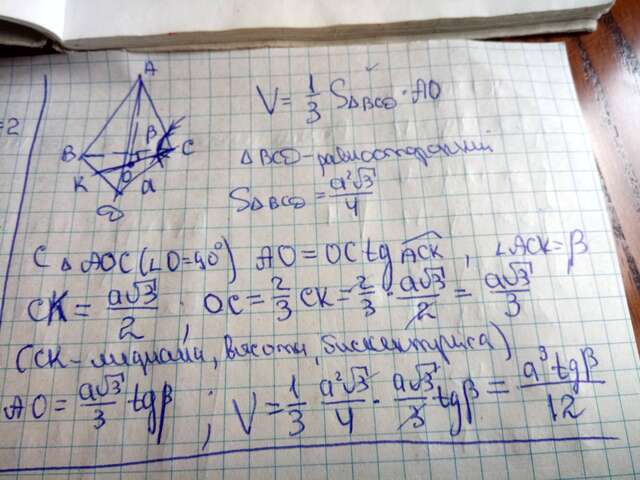 =2
A
B
β
C
K
O
a
D
V = 1/3 S△BCD · AO
△BCD - равносторонний
S△BCD = a²√3/4
С △AOC (∠O=90°) AO = OC tg ACK, ∠ACK = β
CK = a√3/2 ; OC = 2/3 CK = 2/3 · a√3/2 = a√3/3
(CK - медиана, высота, биссектриса)
AO = a√3/3 · tgβ ; V = 1/3 · a²√3/4 · a√3/3 tgβ = a³tgβ/12